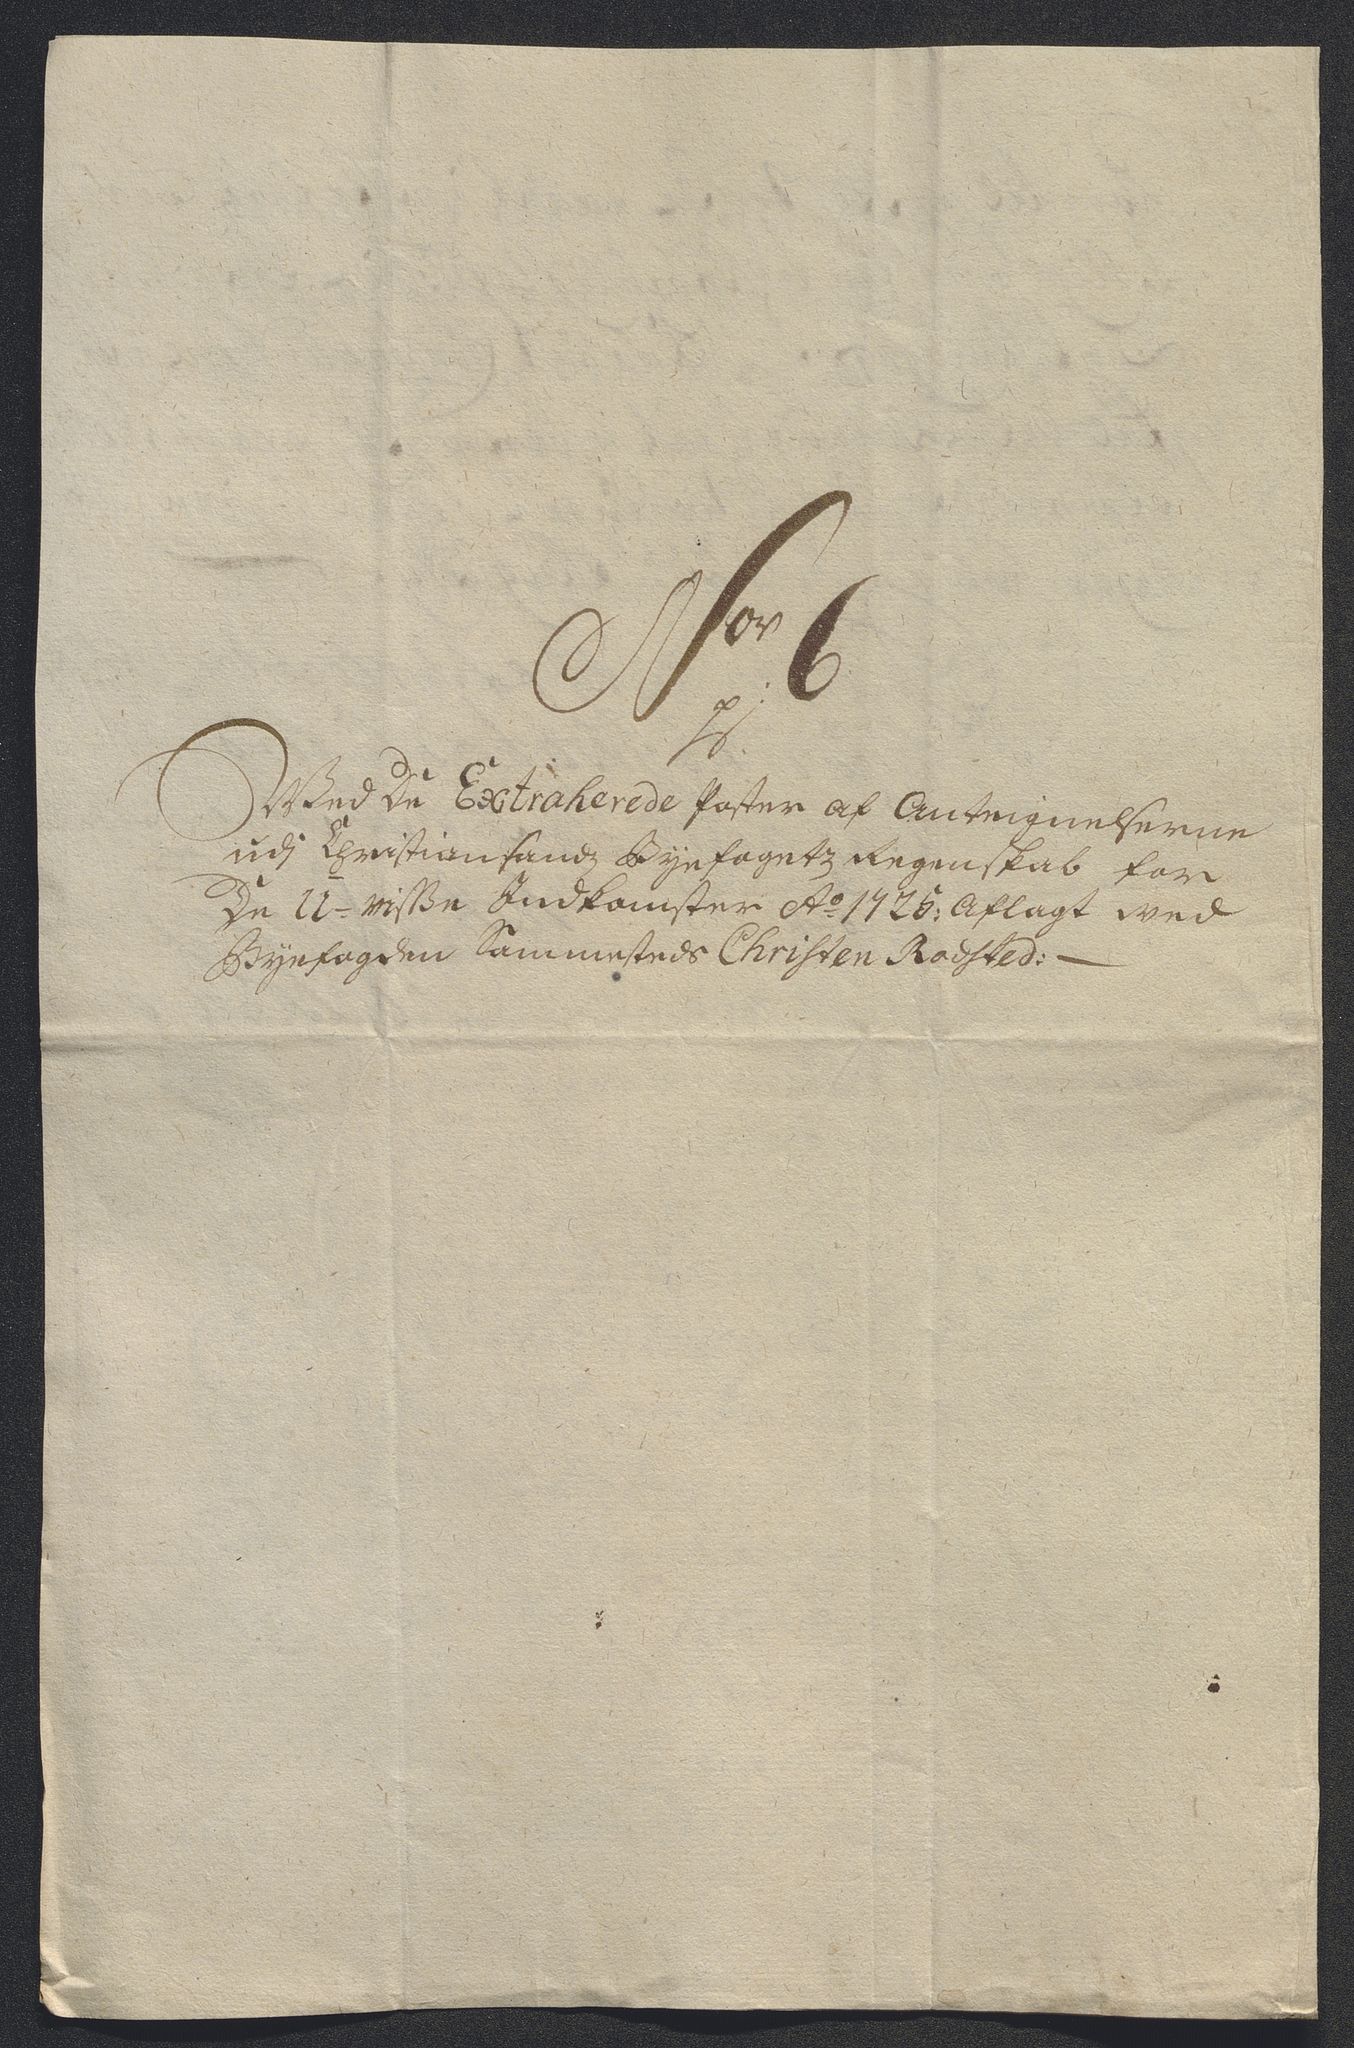 Nor 6
Wed De Extraherede Poster af Anteignelserne
udj Christiansandz Byefogetz Regenskab for
De U-visse Indkomster Ao 1725: Aflagt wed
Byefogden Sammesteds Christen Rodsted: